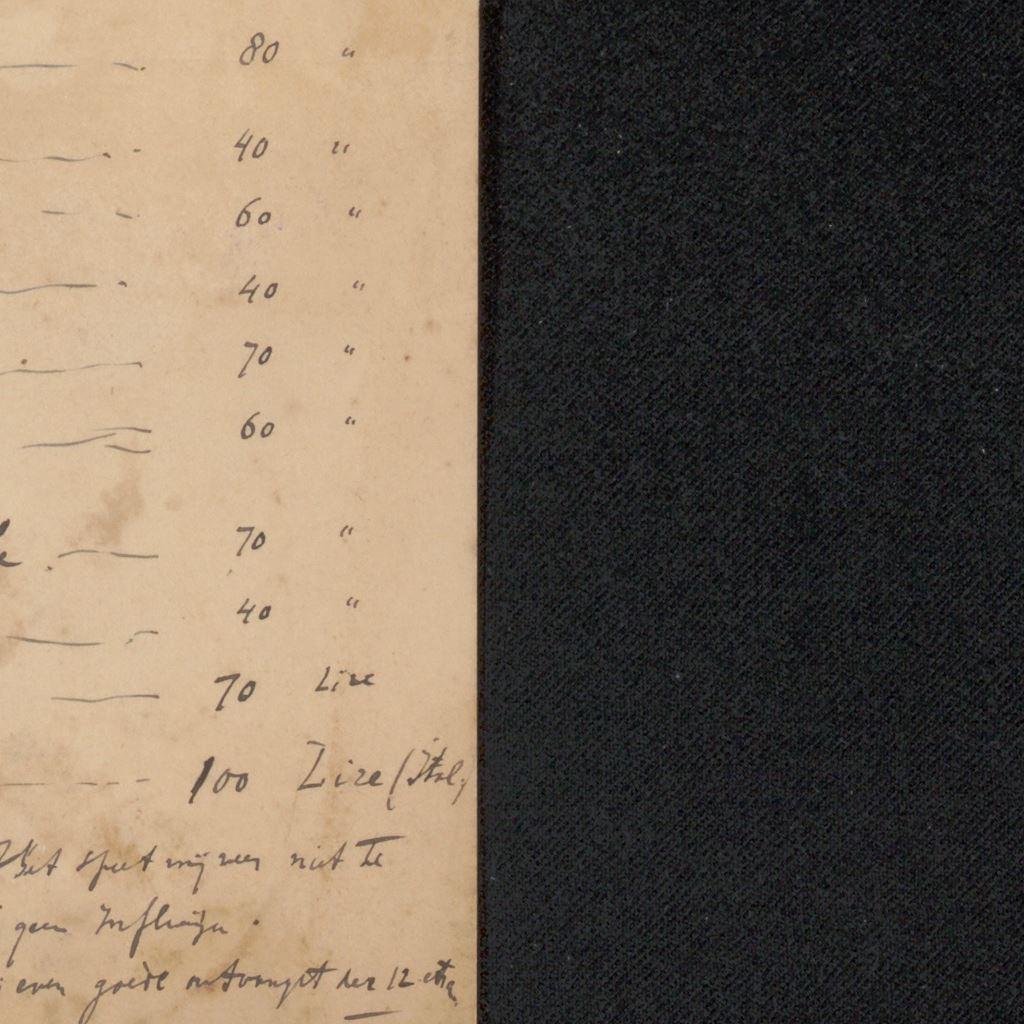 80 "
40 "
60 "
40 "
70 "
60 "
70 "
40 "
70 Lire
100 Lire (Ital.)
Het speet mij zeer niet te
geen
even goede ontvangst der 12 etsn